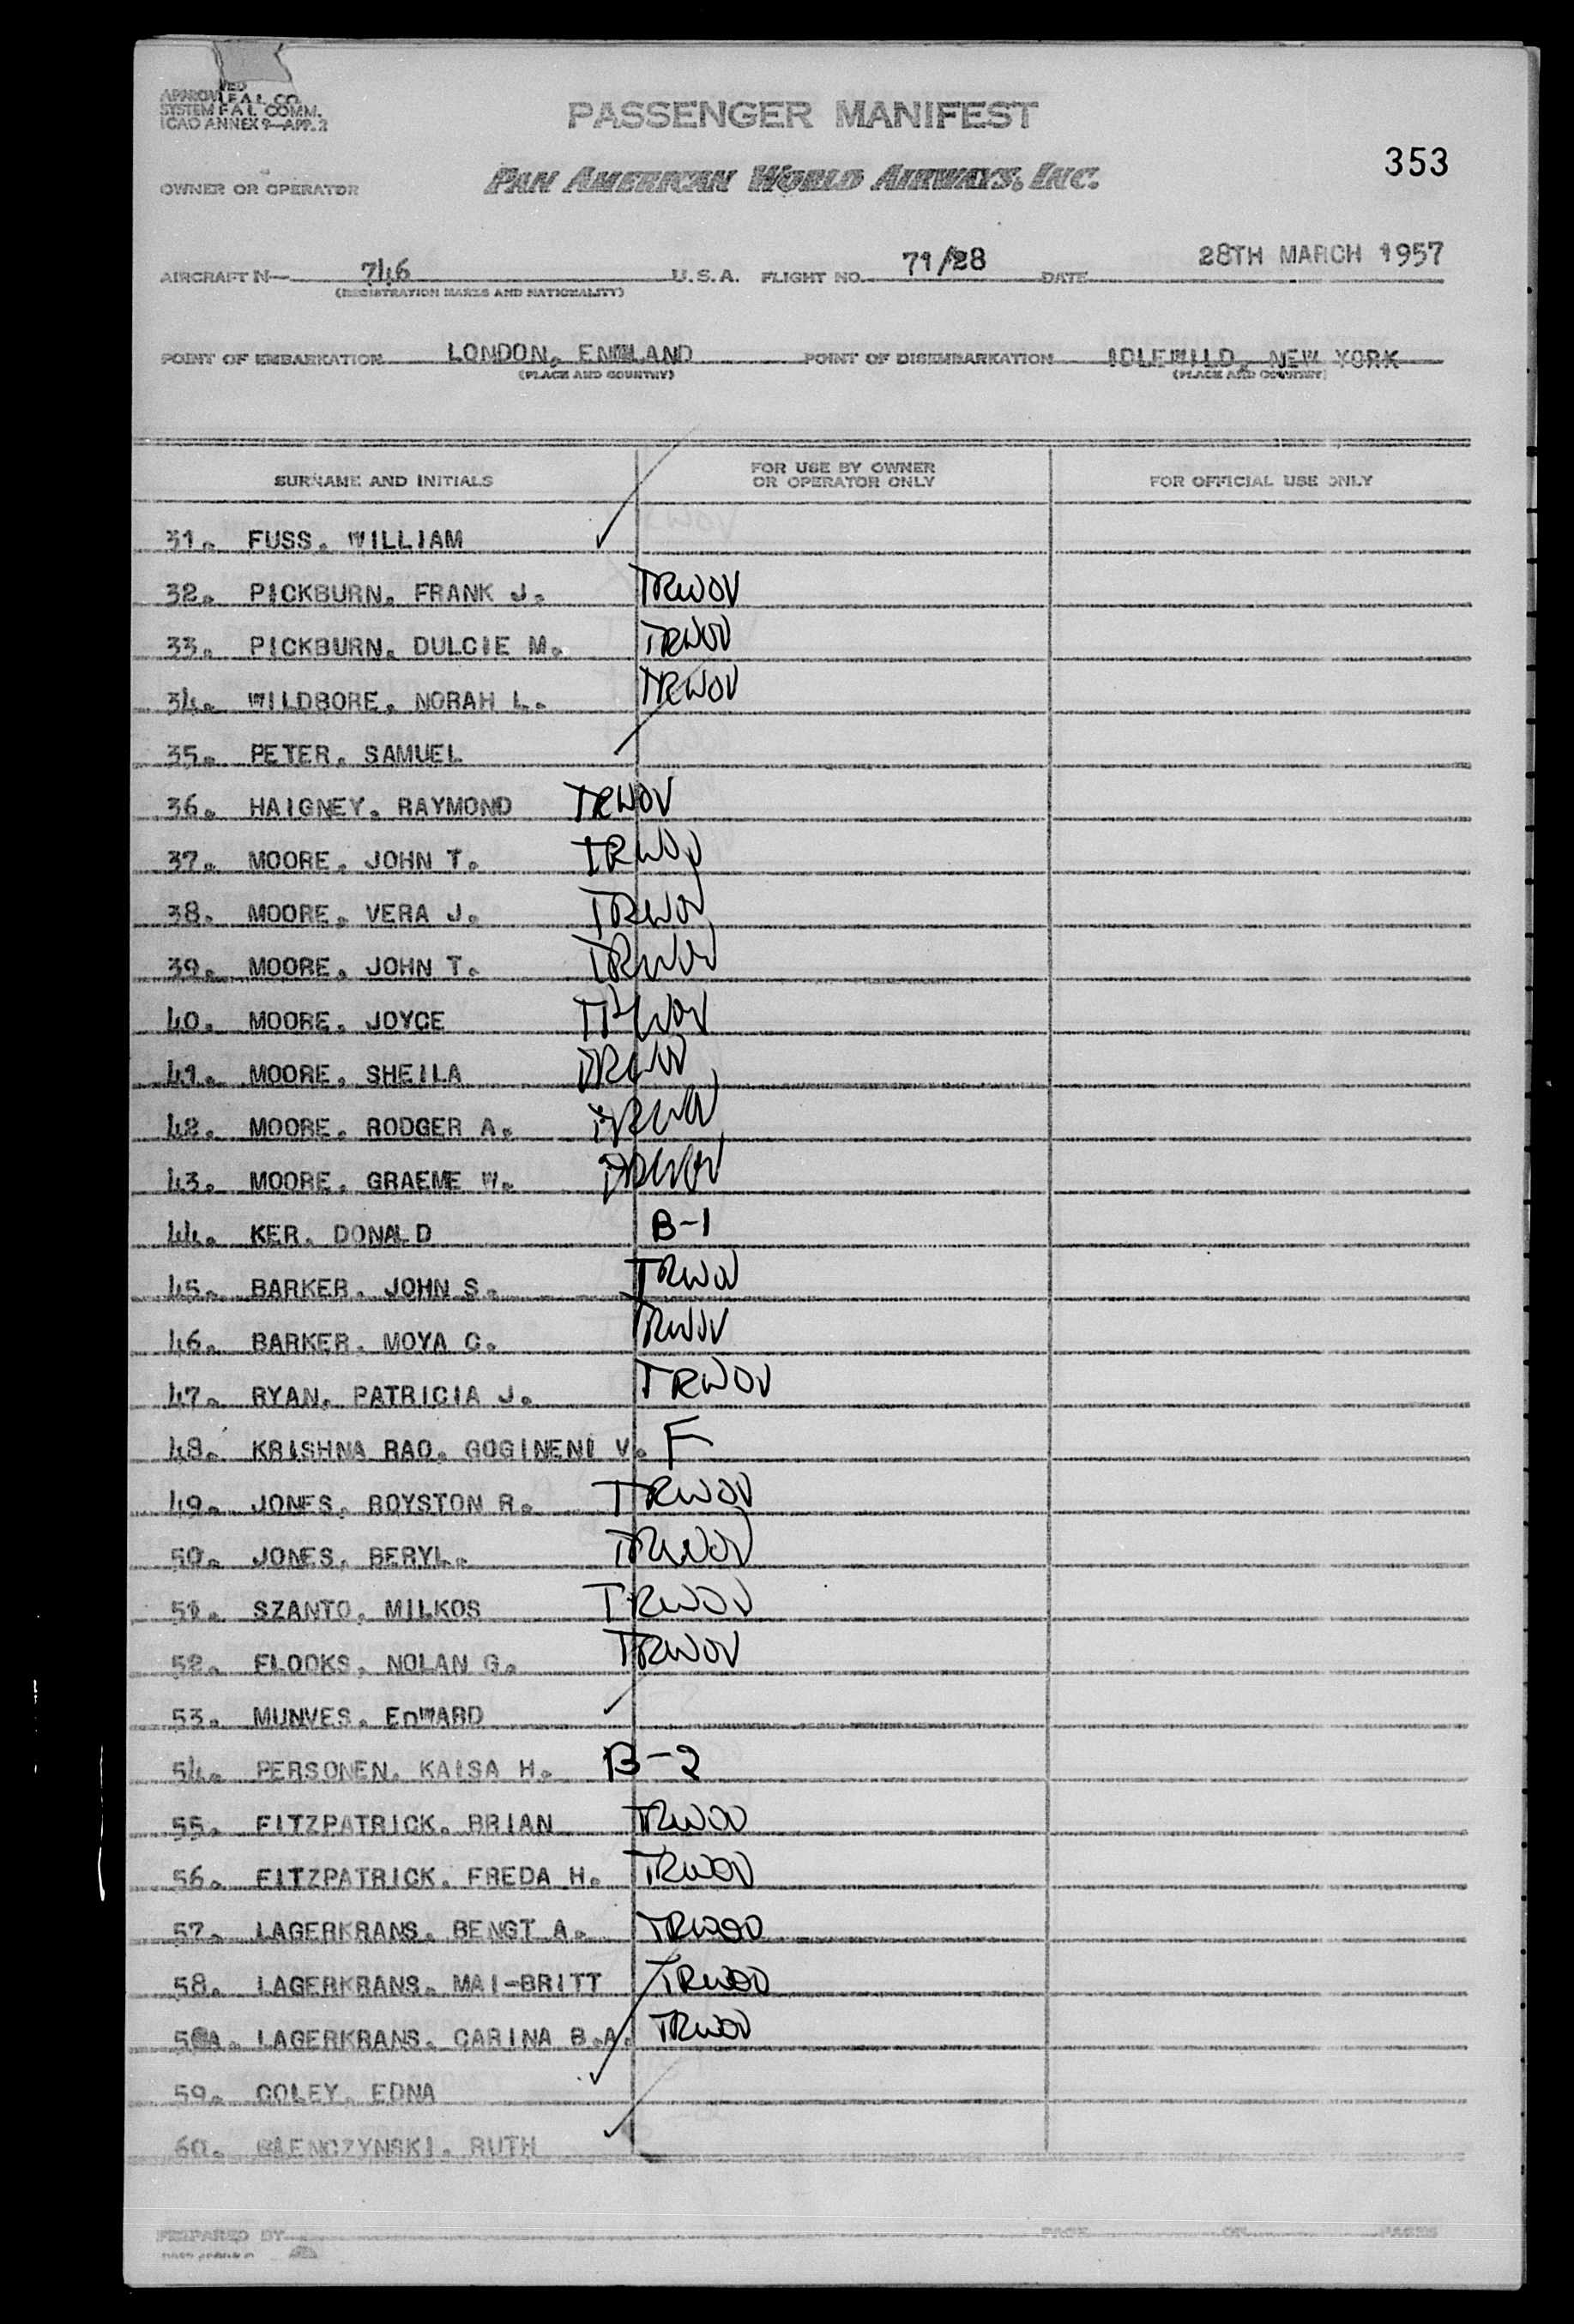 APPROVED
I.F.A.L. CO.
SYSTEM F A L COMM.
ICAO ANNEX 9—APP. 2
PASSENGER MANIFEST
353
OWNER OR OPERATOR PAN AMERICAN WORLD AIRWAYS, INC.
AIRCRAFT N— 746 U.S.A. FLIGHT NO. 71/28 DATE 28TH MARCH 1957
(REGISTRATION MARKS AND NATIONALITY)
POINT OF EMBARKATION LONDON, ENGLAND POINT OF DISEMBARKATION IDLEWILD, NEW YORK
(PLACE AND COUNTRY) (PLACE AND COUNTRY)
SURNAME AND INITIALS FOR USE BY OWNER OR OPERATOR ONLY FOR OFFICIAL USE ONLY
31. FUSS, WILLIAM
32. PICKBURN, FRANK J. TRWOV
33. PICKBURN, DULCIE M. TRWOV
34. WILDBORE, NORAH L. TRWOV
35. PETER, SAMUEL
36. HAIGNEY, RAYMOND TRWOV
37. MOORE, JOHN T. TRWOV
38. MOORE, VERA J. TRWOV
39. MOORE, JOHN T. TRWOV
40. MOORE, JOYCE TRWOV
41. MOORE, SHEILA TRWOV
42. MOORE, RODGER A. TRWOV
43. MOORE, GRAEME W. TRWOV
44. KER, DONALD B-1
45. BARKER, JOHN S. TRWOV
46. BARKER, MOYA C. TRWOV
47. RYAN, PATRICIA J. TRWOV
48. KRISHNA RAO, GOGINENI V. F
49. JONES, ROYSTON R. TRWOV
50. JONES, BERYL. TRWOV
51. SZANTO, MILKOS TRWOV
52. FLOOKS, NOLAN G. TRWOV
53. MUNVES, EDWARD
54. PERSONEN, KAISA H. B-2
55. FITZPATRICK, BRIAN TRWOV
56. FITZPATRICK, FREDA H. TRWOV
57. LAGERKRANS, BENGT A. TRWOV
58. LAGERKRANS, MAI-BRITT TRWOV
58A. LAGERKRANS, CARINA B.A. TRWOV
59. COLEY, EDNA
60. SLENCZYNSKI, RUTH
PREPARED BY PAGE OF PAGES